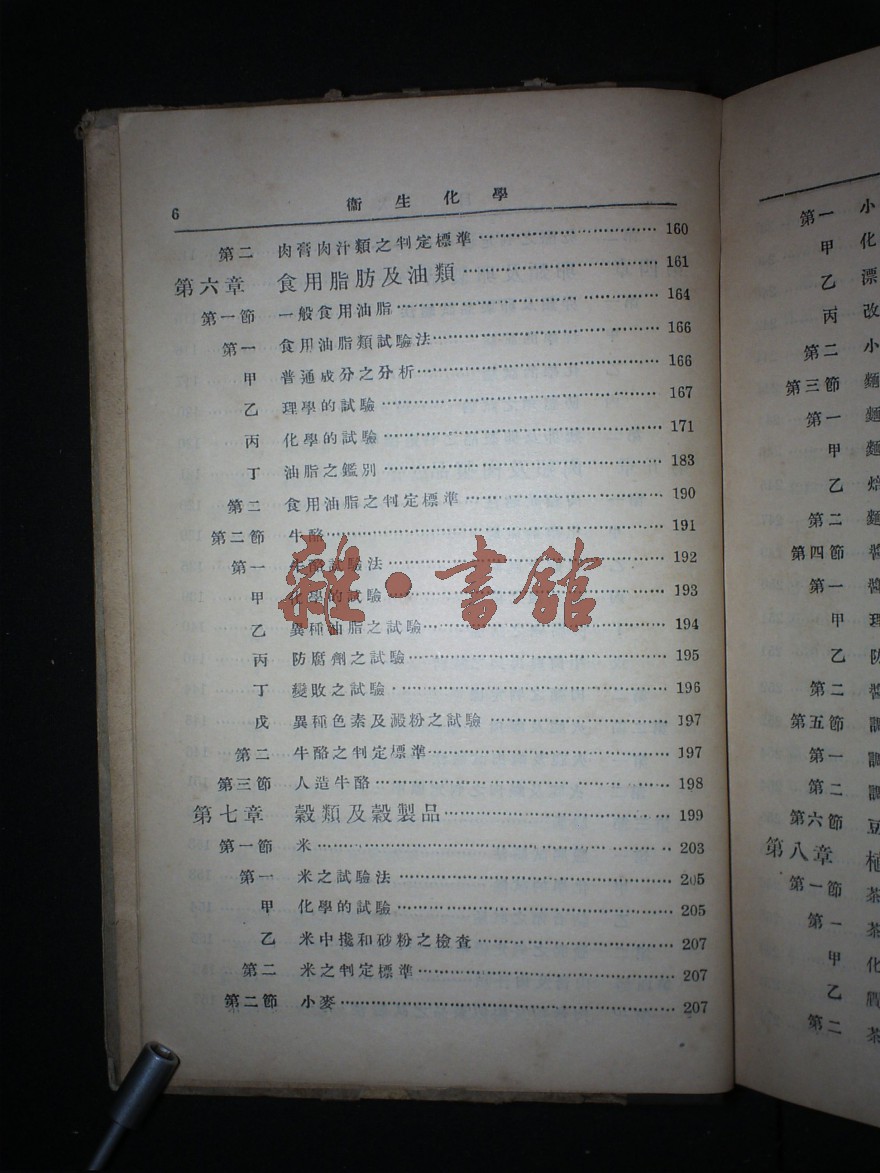 6 衞生化學
第二 肉膏肉汁類之判定標準 160
第六章 食用脂肪及油類 161
第一節 一般食用油脂 164
第一 食用油脂類試驗法 166
甲 普通成分之分析 166
乙 理學的試驗 167
丙 化學的試驗 171
丁 油脂之鑑別 183
第二 食用油脂之判定標準 190
第二節 牛酪 191
第一 牛酪試驗法 192
甲 化學的試驗 193
乙 異種油脂之試驗 194
丙 防腐劑之試驗 195
丁 變敗之試驗 196
戊 異種色素及澱粉之試驗 197
第二 牛酪之判定標準 197
第三節 人造牛酪 198
第七章 穀類及穀製品 199
第一節 米 203
第一 米之試驗法 205
甲 化學的試驗 205
乙 米中攙和砂粉之檢查 207
第二 米之判定標準 207
第二節 小麥 207
雜·書館
第一 小
甲 化
乙 漂
丙 改
第二 小
第三節 麵
第一 麵
甲 麵
乙 焙
第二 麵
第四節 醬
第一 醬
甲 理
乙 防
第二 醬
第五節
第一
第二
第六節 豆
第八章
第一節 茶
第一 茶
甲 化
乙
第二 茶